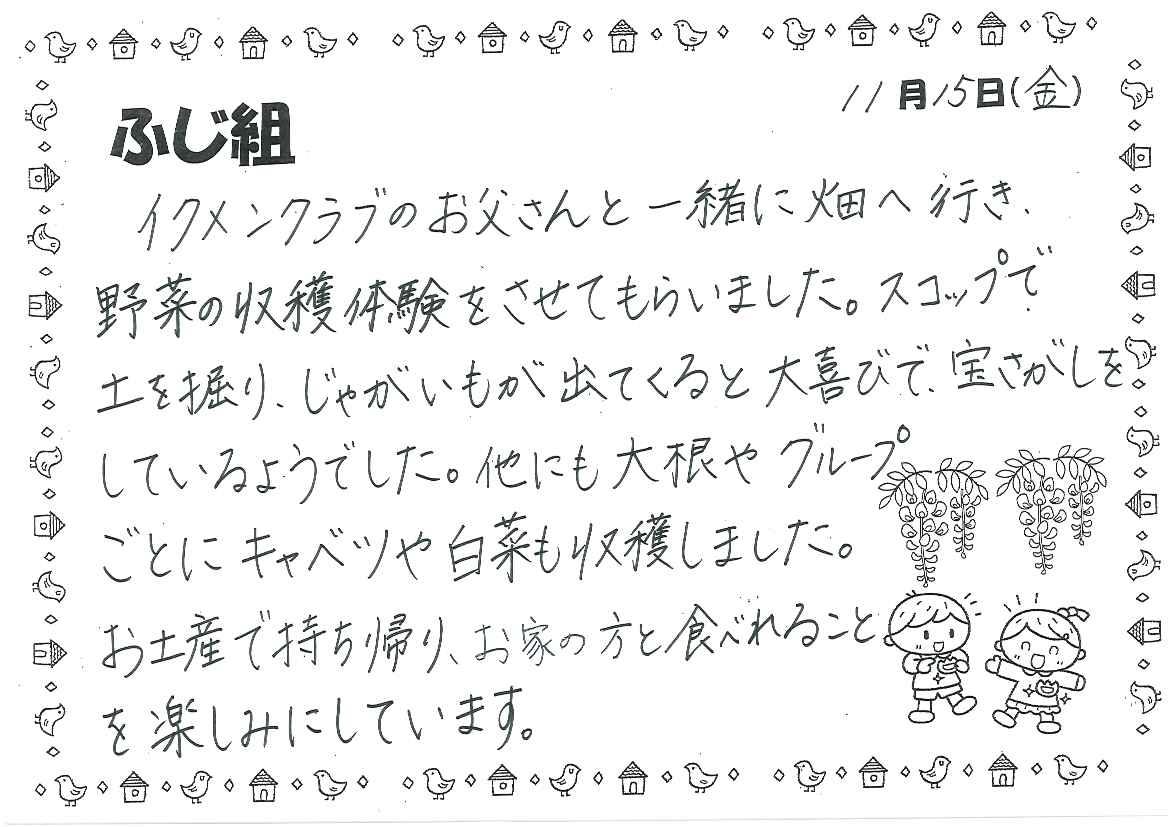 11月15日(金)
ふじ組
イクメンクラブのお父さんと一緒に畑へ行き、
野菜の収穫体験をさせてもらいました。スコップで
土を掘り、じゃがいもが出てくると大喜びで、宝さがしを
しているようでした。他にも大根やグループ
ごとにキャベツや白菜も収穫しました。
お土産で持ち帰り、お家の方と食べれること
を楽しみにしています。